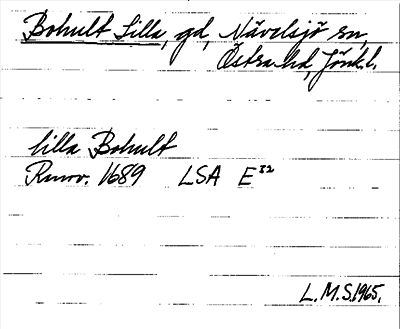 Bohult Lilla, gd, Nävelsjö sn,
Östra hd, Jönk.l.
lilla Bohult
Rmov. 1689 LSA E³²
L.M.S.1965.